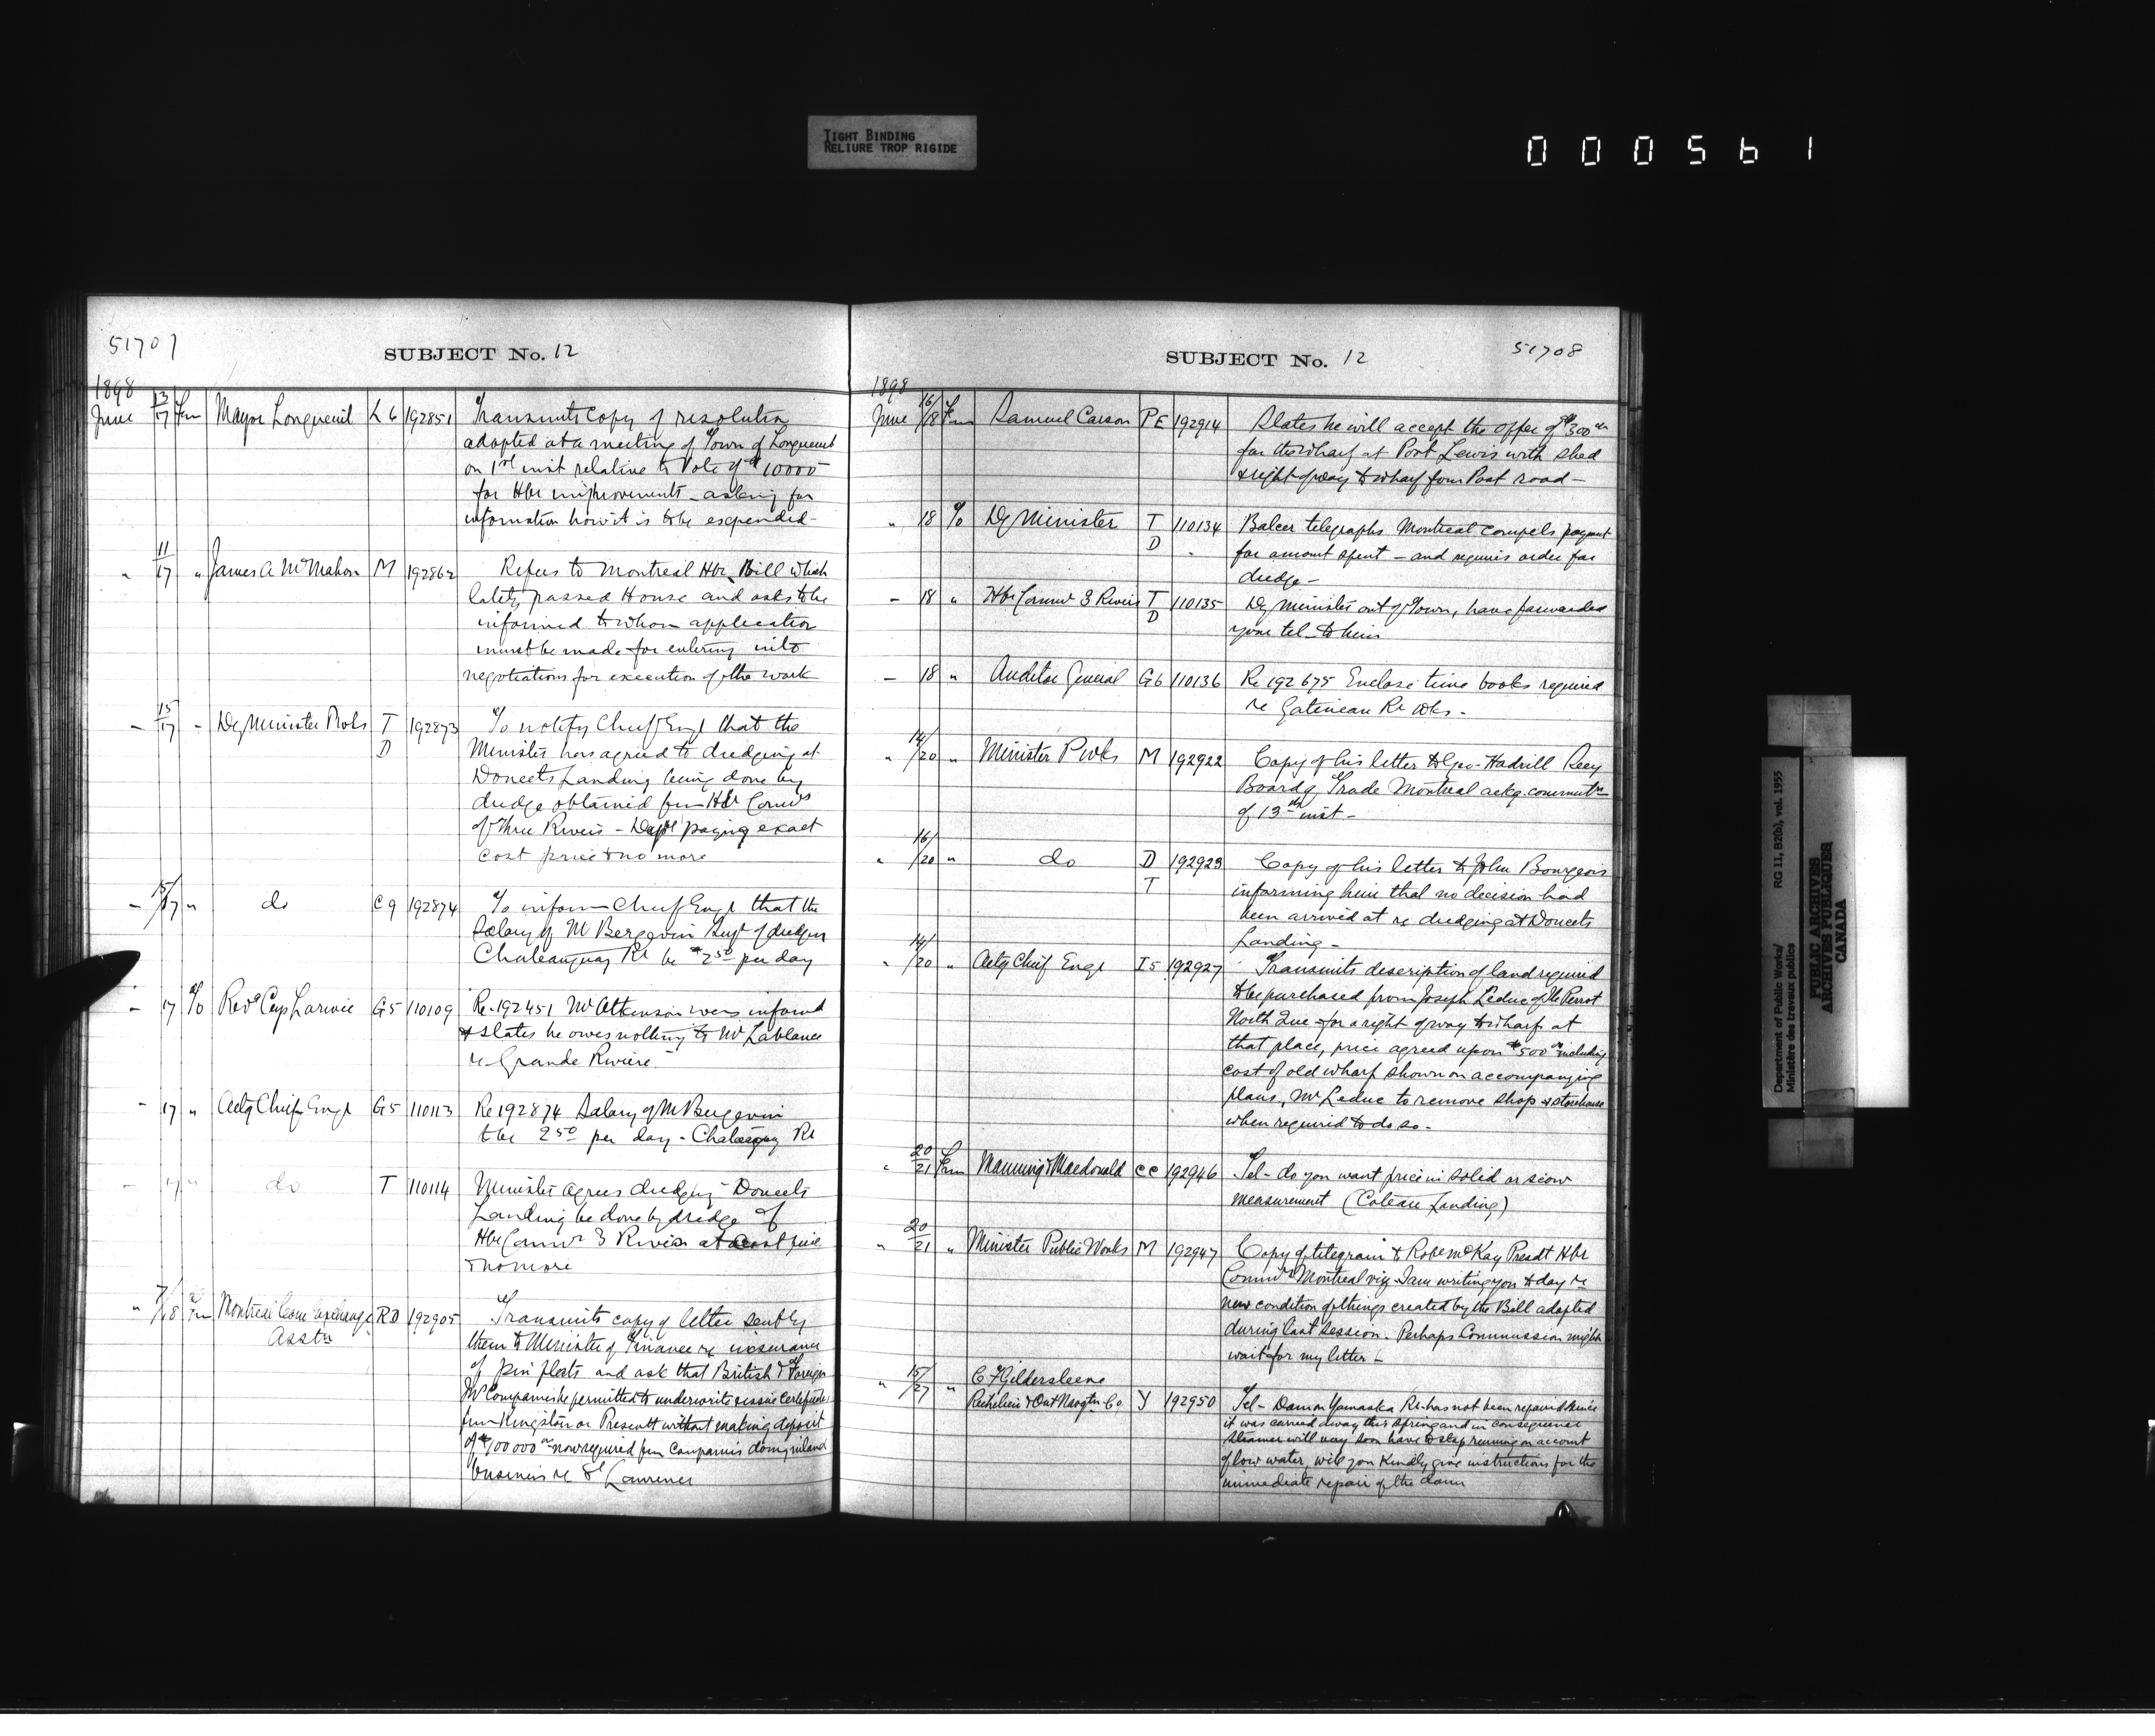 TIGHT BINDING
RELIURE TROP RIGIDE
000561
51707
SUBJECT No. 12
1898
June 13/17 Frm Mayor Longueuil L6 192851 Transmits copy of resolution
adopted at a meeting of Town of Longueuil
on 1st inst relative to Vote of $10000
for Hbr improvements - asking for
information how it is to be expended -
" 11/17 " James A McMahon M 192862 Refers to Montreal Hbr Bill which
lately passed House and asks to be
informed to whom application
must be made for entering into
negotiations for execution of the work
- 15/17 - Dy Minister P Wks T D 192873 To notify Chief Engr that the
Minister has agreed to dredging at
Doucets Landing being done by
dredge obtained frm Hbr Comrs
of Three Rivers - Dept paying exact
cost price & no more
- 15/17 " do C9 192874 To inform Chief Engr that the
Salary of M Bergevin Supt of dredges
Chateauguay Rr be $2.50 per day
- 17 o/o Revd Léger G5 110109 Re 192451 Mr Atkinson was informd
& states he owes nothing to Mr Lablance
re Grande Riviere -
- 17 " Actg Chief Engr G5 110113 Re 192874 Salary of M Bergevin
to be 2.50 per day - Rr
- 17 " do T 110114 Minister agrees dredging Doucets
Landing be done by dredge of
Hbr Comrs 3 Rivers at cost price
& no more
" 7/18 Frm Montreal Corn Exchange Asstn RD 192905 Transmits copy of letter sent by
them to Minister of Finance re insurance
of and ask that British & Foreign
Companies be permitted to underwrite & issue certificates
frm Kingston or Prescott without making deposit
of $100000 00 now required frm Companies doing inland
business re St Lawrence
SUBJECT No. 12
51708
1898
June 16/18 Frm Samuel Carson PE 192914 States he will accept the offer of $300 00
for the wharf at Port Lewis with shed
& right of way to wharf from Post road -
" 18 o/o Dy Minister T D 110134 Balcer telegraphs Montreal compels payment
for amount spent - and requires order for
dredge -
- 18 " Hbr Comrs 3 Rivers T D 110135 Dy Minister out of Town, have forwarded
your tel to him
- 18 " Auditor General G6 110136 Re 192675 Enclose time books required
re Gatineau Rr Wks -
" 14/20 " Minister P Wks M 192922 Copy of his letter to Geo. Hadrill Secy
Board of Trade Montreal ackg communtn
of 13th inst -
" 16/20 " do D T 192923 Copy of his letter to John Bourgeois
informing him that no decision had
been arrived at re dredging at Doucets
Landing -
" 14/20 " Actg Chief Engr I5 192927 Transmits description of land required
to be purchased from Joseph Leduc of Ile Perrot
North Que for a right of way to wharf at
that place, price agreed upon $500 00 including
cost of old wharf shown on accompanying
plans, Mr Leduc to remove shop & storehouse
when required to do so -
" 20/21 Frm Manning & Macdonald CC 192946 Tel - do you want price in solid or scow
measurement (Coteau Landing)
" 20/21 " Minister Public Works M 192947 Copy of telegram to Robt McKay Presdt Hbr
Comrs Montreal viz I am writing you to day re
new condition of things created by the Bill adopted
during last session. Perhaps Commission might
wait for my letter -
" 15/27 " C F Gildersleeve
Richelieu & Ont Navgtn Co Y 192950 Tel - Dam on Yamaska Rr has not been repaired since
it was carried away this spring and in consequence
steamer will very soon have to stop running on account
of low water, will you kindly give instructions for the
immediate repair of the dam
Department of Public Works/
Ministère des travaux publics
RG 11, B2(b), vol. 1955
PUBLIC ARCHIVES
ARCHIVES PUBLIQUES
CANADA